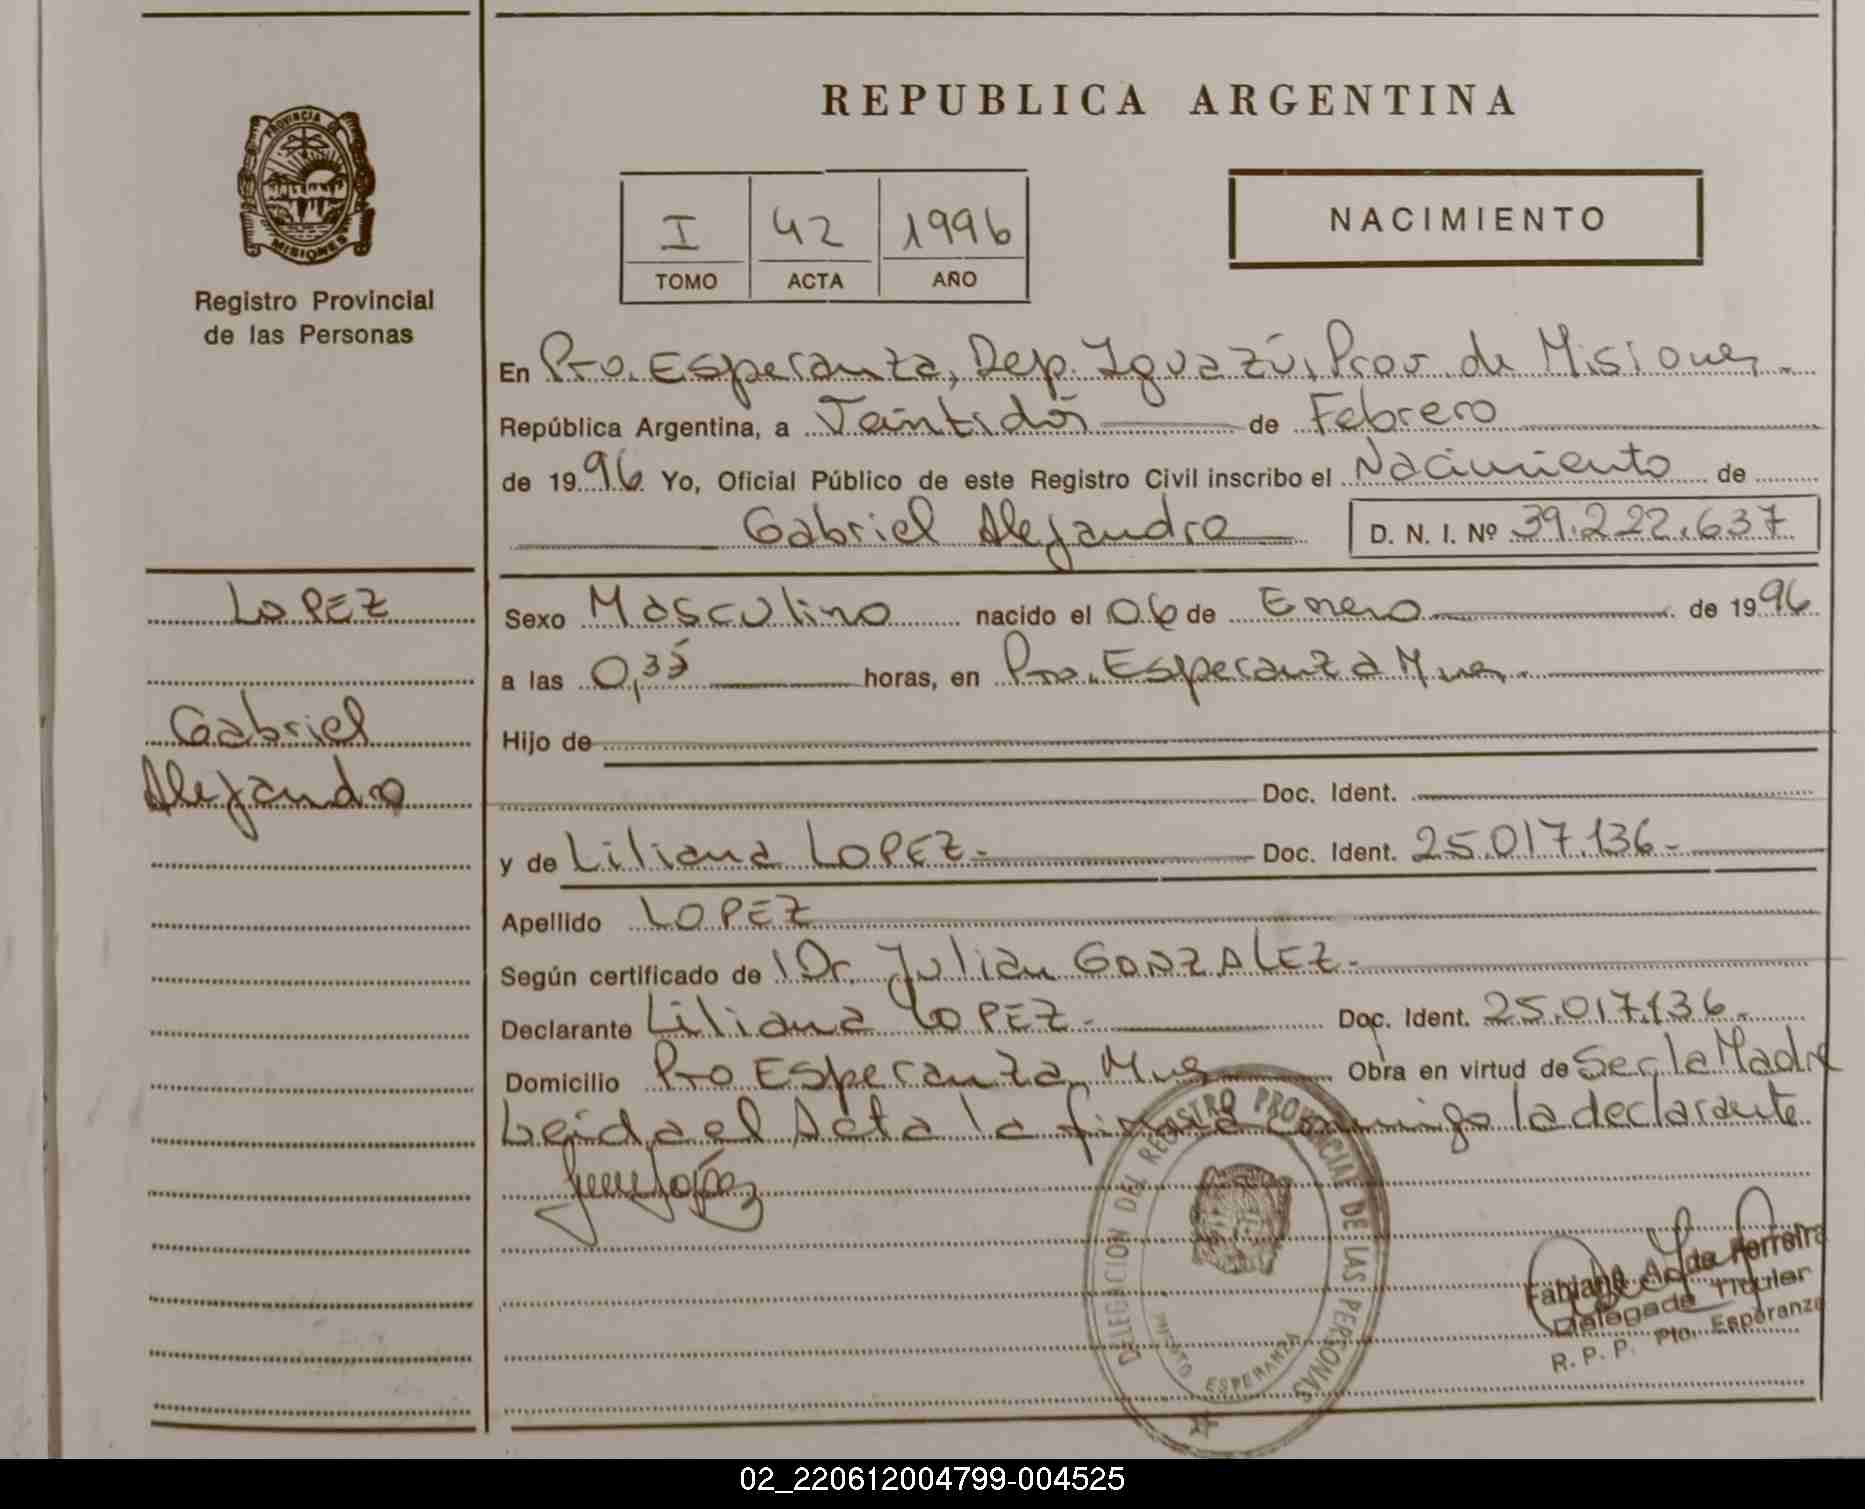 REPUBLICA ARGENTINA
PROVINCIA DE
MISIONES
Registro Provincial
de las Personas
I 42 1996
TOMO ACTA AÑO
NACIMIENTO
En Pto. Esperanza, Dep. Iguazú, Prov. de Misiones.
República Argentina, a Veintidós de Febrero
de 1996 Yo, Oficial Público de este Registro Civil inscribo el Nacimiento de
Gabriel Alejandro D. N. I. Nº 39.222.637
LOPEZ
Gabriel
Alejandro
Sexo Masculino nacido el 06 de Enero de 1996
a las 0,35 horas, en Pto. Esperanza Mnes.
Hijo de
Doc. Ident.
y de Liliana LOPEZ.- Doc. Ident. 25.017.136.-
Apellido LOPEZ
Según certificado de Dr. Julian GONZALEZ.-
Declarante Liliana LOPEZ.- Doc. Ident. 25.017.136.-
Domicilio Pto Esperanza, Mnes Obra en virtud de Ser la Madre
Leida el Acta la firma conmigo la declarante.
DELEGACION DEL REGISTRO PROVINCIAL DE LAS PERSONAS
PUERTO ESPERANZA
Ferreira
Delegada Titular
R. P. P. Pto. Esperanza
02_220612004799-004525